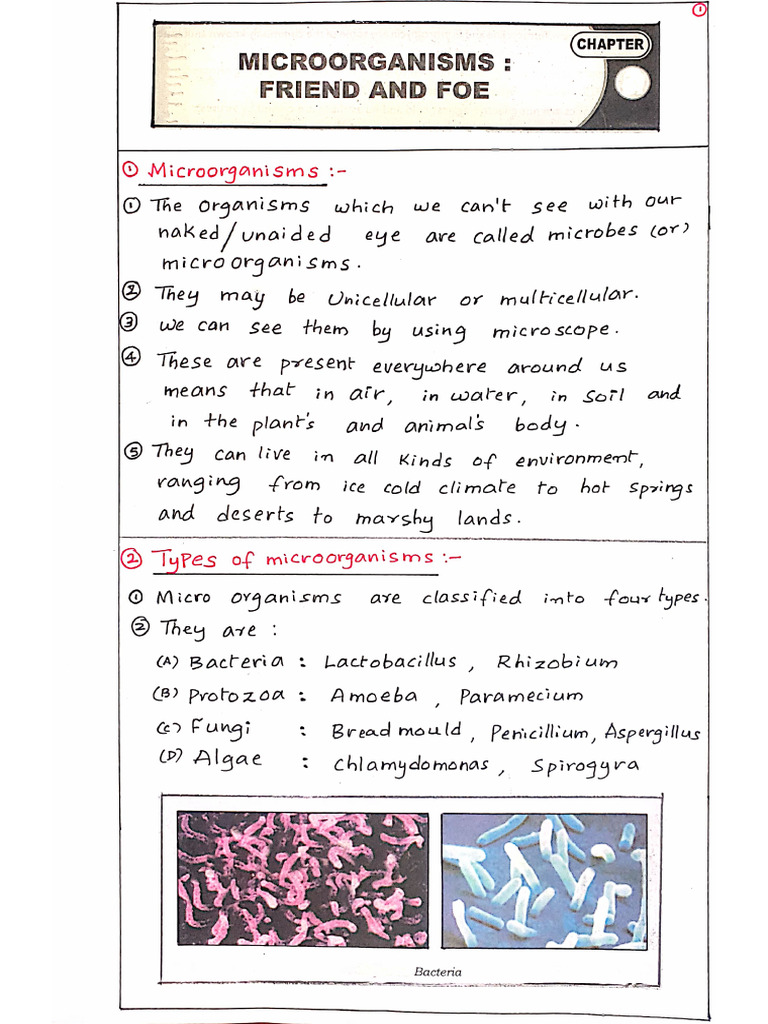 ①
CHAPTER
MICROORGANISMS :
FRIEND AND FOE
① Microorganisms :-
① The organisms which we can't see with our
naked/unaided eye are called microbes (or)
microorganisms.
② They may be Unicellular or multicellular.
③ we can see them by using microscope.
④ These are present everywhere around us
means that in air, in water, in soil and
in the plant's and animal's body.
⑤ They can live in all kinds of environment,
ranging from ice cold climate to hot springs
and deserts to marshy lands.
② Types of microorganisms :-
① Micro organisms are classified into four types.
② They are :
(A) Bacteria : Lactobacillus, Rhizobium
(B) Protozoa : Amoeba, Paramecium
(C) Fungi : Bread mould, Penicillium, Aspergillus
(D) Algae : Chlamydomonas, Spirogyra
Bacteria